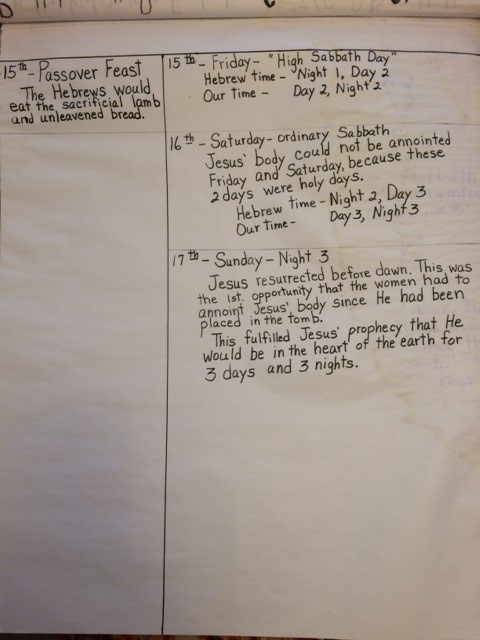 15th - Passover Feast
The Hebrews would
eat the sacrificial lamb
and unleavened bread.
15th - Friday - "High Sabbath Day"
Hebrew time - Night 1, Day 2
Our time - Day 2, Night 2
16th - Saturday - ordinary Sabbath
Jesus' body could not be annointed
Friday and Saturday, because these
2 days were holy days.
Hebrew time - Night 2, Day 3
Our time - Day 3, Night 3
17th - Sunday - Night 3
Jesus resurrected before dawn. This was
the 1st. opportunity that the women had to
annoint Jesus' body since He had been
placed in the tomb.
This fulfilled Jesus' prophecy that He
would be in the heart of the earth for
3 days and 3 nights.